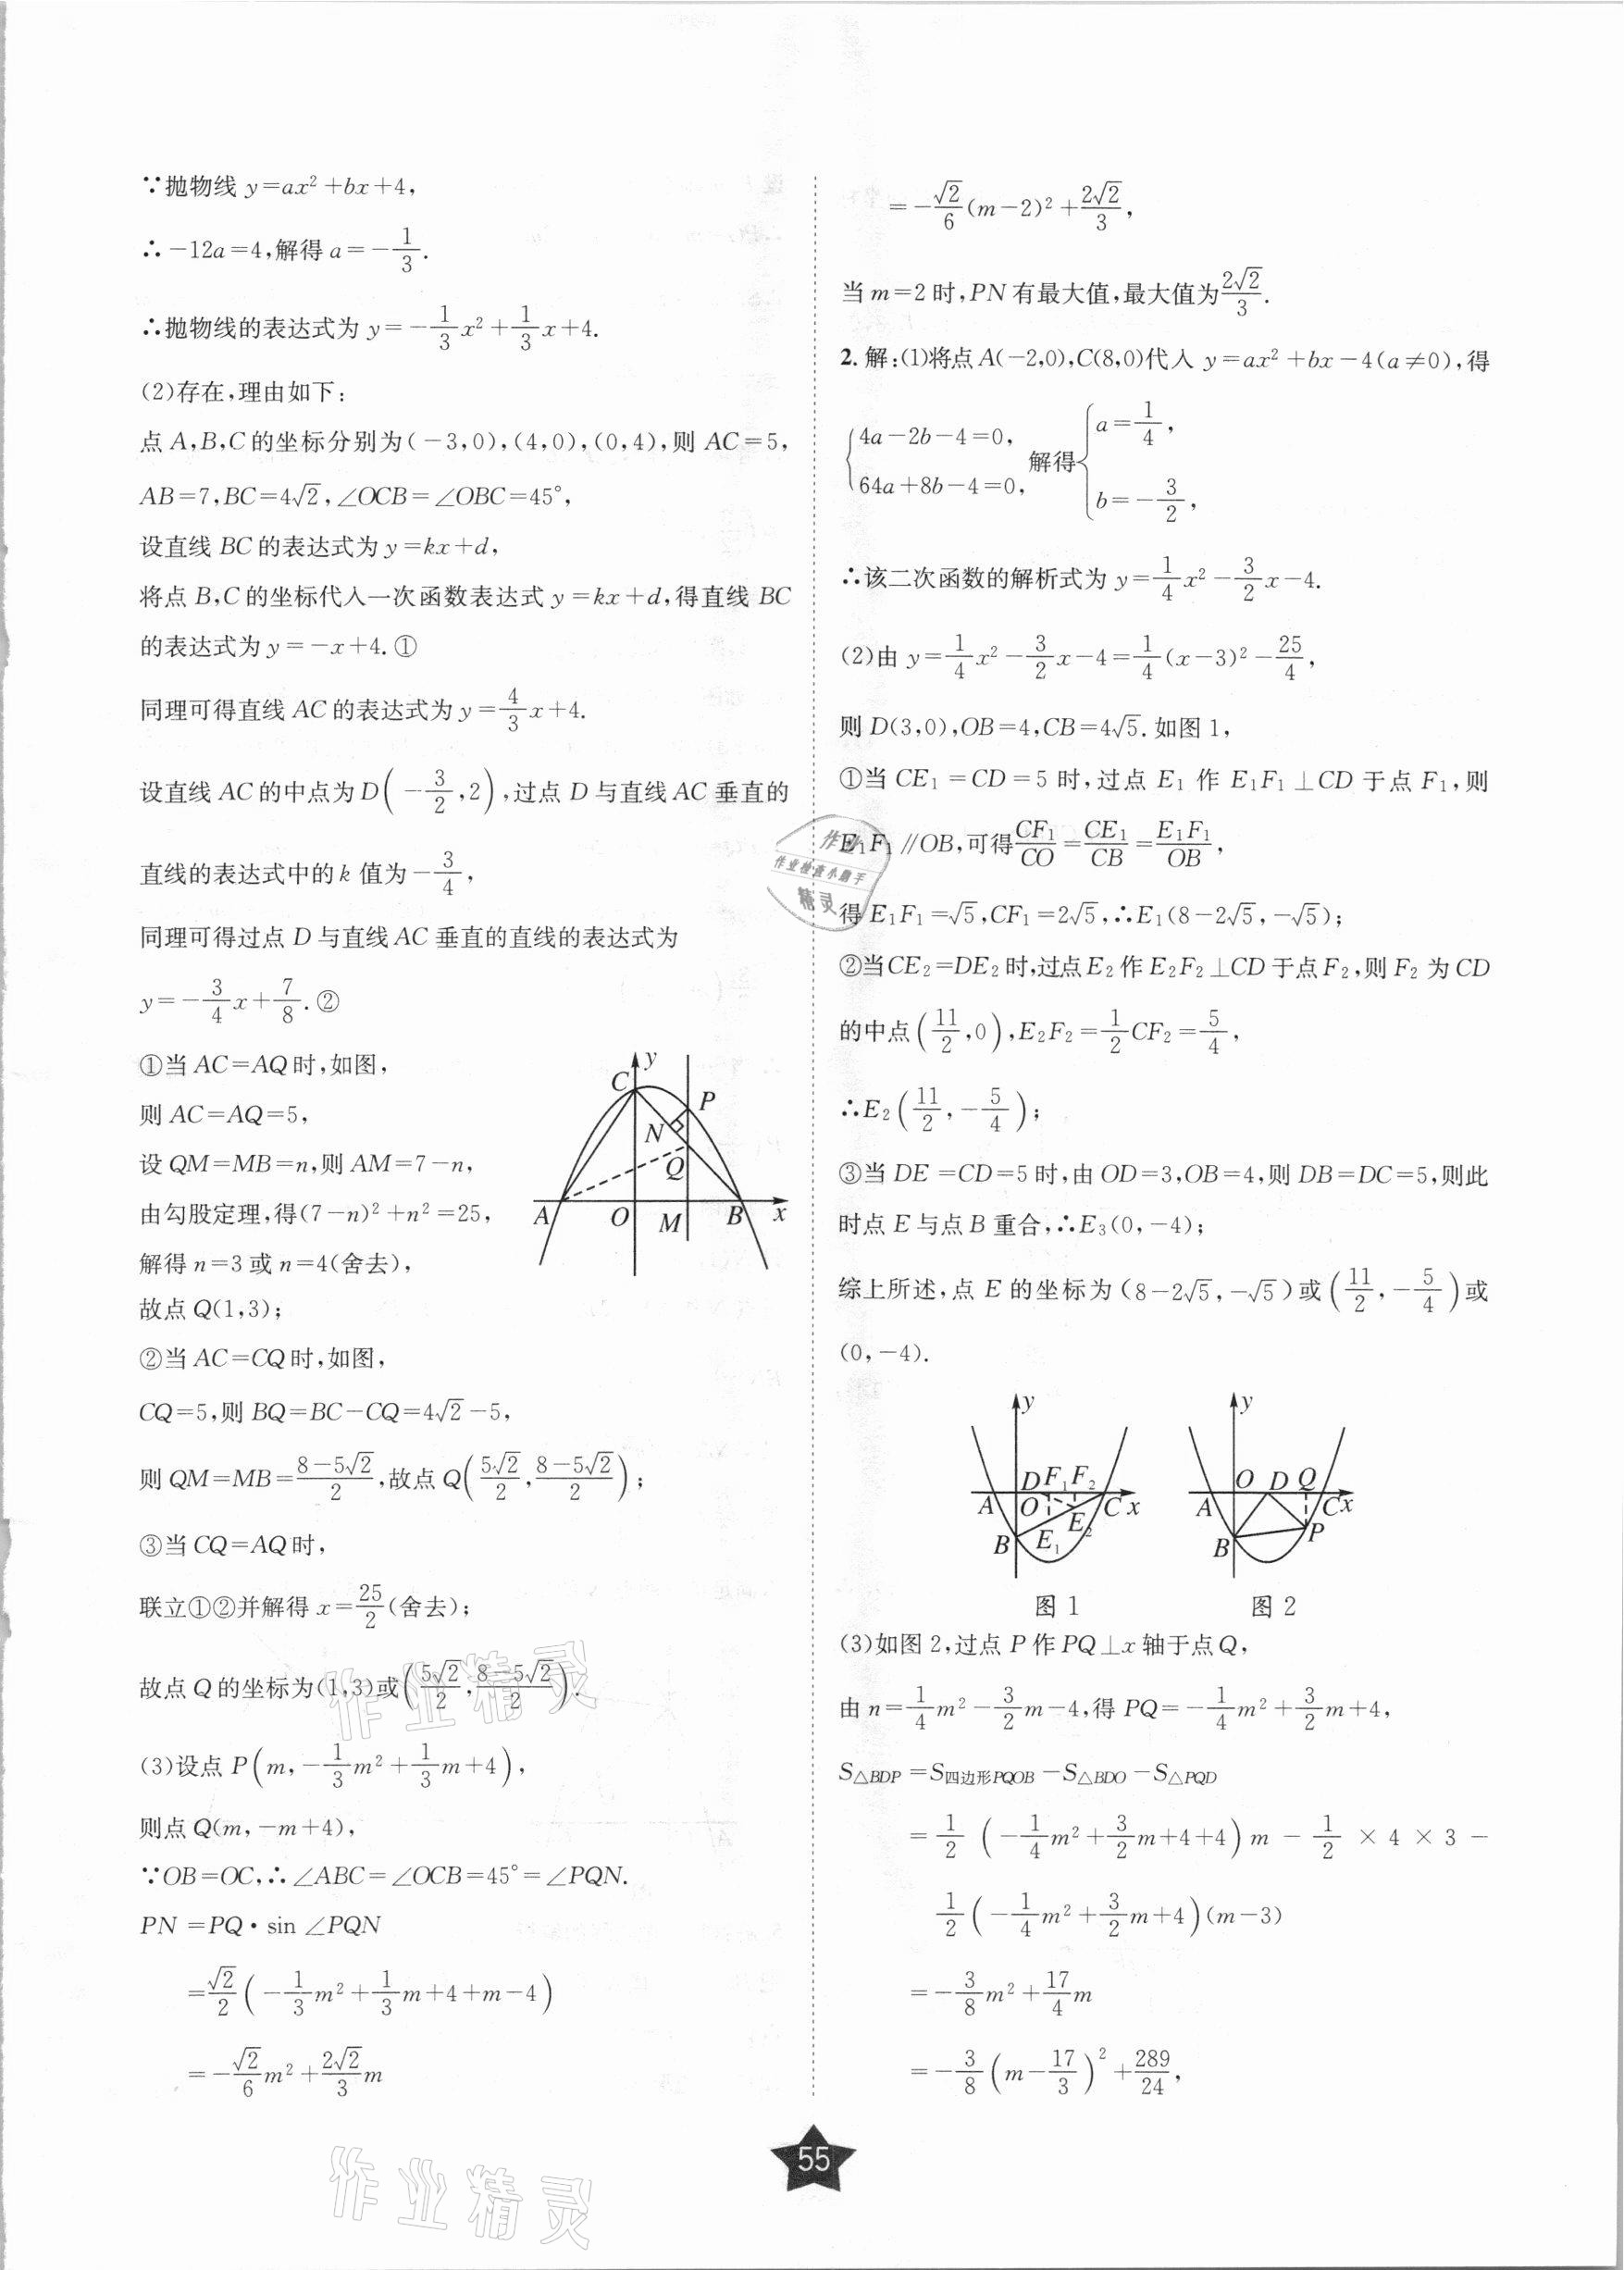 ∵抛物线 y=ax²+bx+4,
∴-12a=4,解得 a=-1/3.
∴抛物线的表达式为 y=-1/3x²+1/3x+4.
(2)存在,理由如下:
点 A,B,C 的坐标分别为(-3,0),(4,0),(0,4),则 AC=5,
AB=7,BC=4√2,∠OCB=∠OBC=45°,
设直线 BC 的表达式为 y=kx+d,
将点 B,C 的坐标代入一次函数表达式 y=kx+d,得直线 BC
的表达式为 y=-x+4.①
同理可得直线 AC 的表达式为 y=4/3x+4.
设直线 AC 的中点为 D(-3/2,2),过点 D 与直线 AC 垂直的
直线的表达式中的 k 值为-3/4,
同理可得过点 D 与直线 AC 垂直的直线的表达式为
y=-3/4x+7/8.②
①当 AC=AQ 时,如图,
则 AC=AQ=5,
设 QM=MB=n,则 AM=7-n,
由勾股定理,得(7-n)²+n²=25,
解得 n=3 或 n=4(舍去),
故点 Q(1,3);
y
C
P
N
Q
A
O
M
B
x
②当 AC=CQ 时,如图,
CQ=5,则 BQ=BC-CQ=4√2-5,
则 QM=MB=(8-5√2)/2,故点 Q(5√2/2,(8-5√2)/2);
③当 CQ=AQ 时,
联立①②并解得 x=25/2(舍去);
故点 Q 的坐标为(1,3)或(5√2/2,(8-5√2)/2).
(3)设点 P(m,-1/3m²+1/3m+4),
则点 Q(m,-m+4),
∵OB=OC,∴∠ABC=∠OCB=45°=∠PQN.
PN=PQ·sin∠PQN
=√2/2(-1/3m²+1/3m+4+m-4)
=-√2/6m²+2√2/3m
=-√2/6(m-2)²+2√2/3,
当 m=2 时,PN 有最大值,最大值为2√2/3.
2.解:(1)将点 A(-2,0),C(8,0)代入 y=ax²+bx-4(a≠0),得
{4a-2b-4=0, 64a+8b-4=0, 解得{a=1/4, b=-3/2,
∴该二次函数的解析式为 y=1/4x²-3/2x-4.
(2)由 y=1/4x²-3/2x-4=1/4(x-3)²-25/4,
则 D(3,0),OB=4,CB=4√5.如图 1,
①当 CE₁=CD=5 时,过点 E₁ 作 E₁F₁⊥CD 于点 F₁,则
E₁F₁∥OB,可得CF₁/CO=CE₁/CB=E₁F₁/OB,
得 E₁F₁=√5,CF₁=2√5,∴E₁(8-2√5,-√5);
②当CE₂=DE₂时,过点E₂作E₂F₂⊥CD于点F₂,则F₂为CD
的中点(11/2,0),E₂F₂=1/2CF₂=5/4,
∴E₂(11/2,-5/4);
③当 DE=CD=5 时,由 OD=3,OB=4,则 DB=DC=5,则此
时点 E 与点 B 重合,∴E₃(0,-4);
综上所述,点 E 的坐标为(8-2√5,-√5)或(11/2,-5/4)或
(0,-4).
y
D F₁ F₂
A O C x
E₂
B E₁
图 1
y
O D Q
A C x
P
B
图 2
(3)如图 2,过点 P 作 PQ⊥x 轴于点 Q,
由 n=1/4m²-3/2m-4,得 PQ=-1/4m²+3/2m+4,
S△BDP=S四边形PQOB-S△BDO-S△PQD
=1/2(-1/4m²+3/2m+4+4)m-1/2×4×3-
1/2(-1/4m²+3/2m+4)(m-3)
=-3/8m²+17/4m
=-3/8(m-17/3)²+289/24,
55
作业
作业检查小助手
精灵
作业精灵
作业精灵